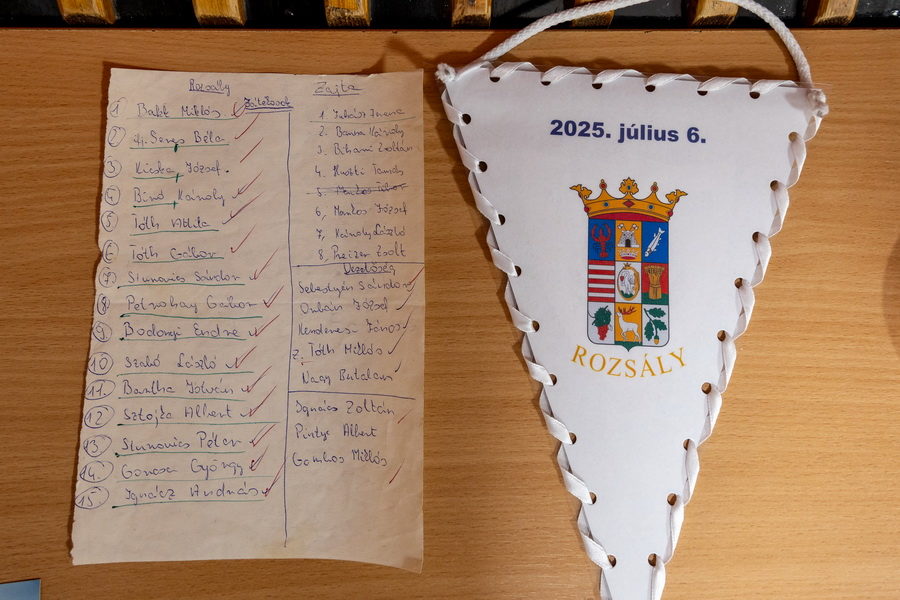 Rozsály
Játékosok
1 Bakk Miklós
2 id. Seres Béla
3 Kicska József.
4 Bíró Károly
5 Tóth Attila
6 Tóth Gábor
7 Sturovics Sándor
8 Pétrohay Gábor
9 Bodonyi Endre
10 Szabó László
11. Bartha István
12 Sztojka Albert
13. Sturovics Péter
14. Goncsa György
15. Ignácz András
Zajta
1 Juhász Imre
2. Banka Károly
3. Bihari Zoltán
4. Tamás
5.
6, Mankos József
7, Károly László
8, Zsolt
Vezetőség
Sebestyén Sándor
Orbán József
Kenderesi János
2. Tóth Miklós
Nagy Bertalan
Ignácz Zoltán
Pintye Albert
Gombos Miklós
2025. július 6.
ROZSÁLY